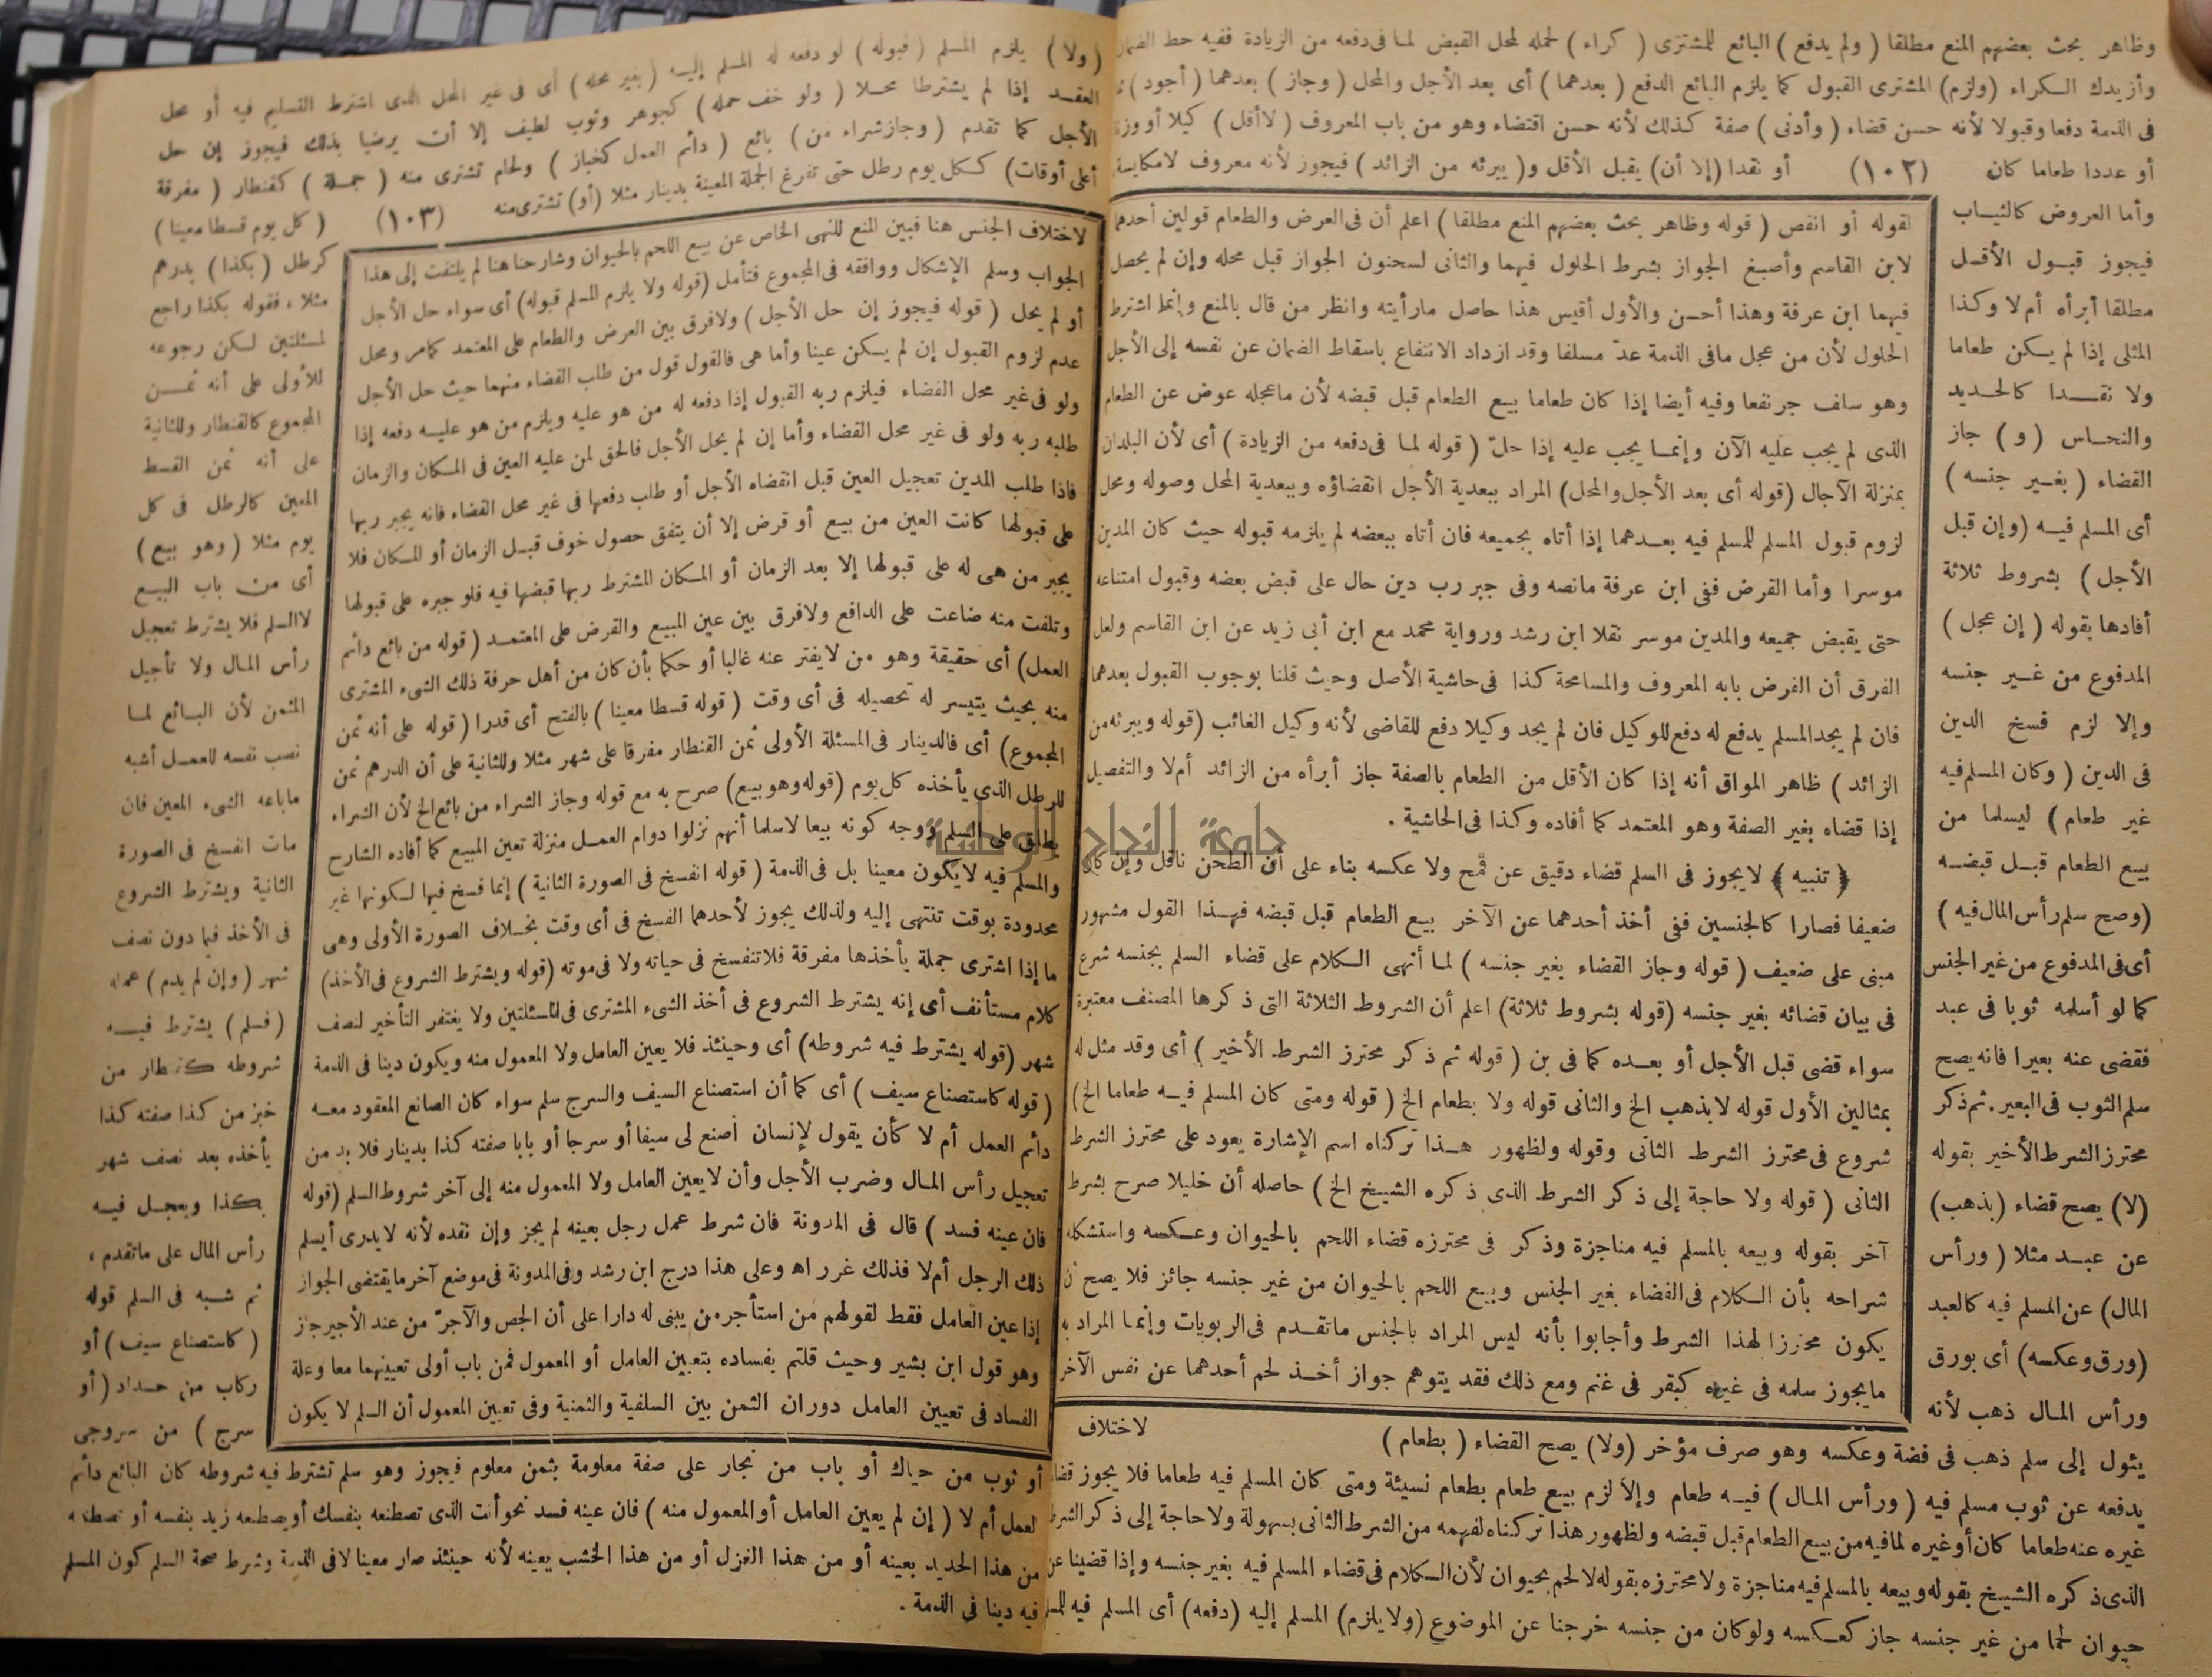 وظاهر بحث بعضهم المنع مطلقا ( ولم يدفع ) البائع للمشترى ( كراء ) لحمله لمحل القبض لما فى دفعه من الزيادة ففيه حط الضمان
وأزيدك الكراء (ولزم) المشترى القبول كما يلزم البائع الدفع ( بعدهما ) أى بعد الأجل والمحل ( وجاز ) بعدهما ( أجود )
فى الذمة دفعا وقبولا لأنه حسن قضاء ( وأدنى ) صفة كذلك لأنه حسن اقتضاء وهو من باب المعروف ( لا أقل ) كيلا أو وزنا
أو عددا طعاما كان (١٠٢) أو نقدا (إلا أن) يقبل الأقل و( يبرئه من الزائد ) فيجوز لأنه معروف لا مكايسة
وأما العروض كالثياب
فيجوز قبول الأقل
مطلقا أبرأه أم لا وكذا
المثلى إذا لم يكن طعاما
ولا نقدا كالحديد
والنحاس (و) جاز
القضاء ( بغير جنسه )
أى المسلم فيه (وإن قبل
الأجل ) بشروط ثلاثة
أفادها بقوله ( إن عجل )
المدفوع من غير جنسه
وإلا لزم فسخ الدين
فى الدين ( وكان المسلم فيه
غير طعام ) ليسلما من
بيع الطعام قبل قبضه
(وصح سلم رأس المال فيه )
أى فى المدفوع من غير الجنس
كما لو أسلمه ثوبا فى عبد
فقضى عنه بعيرا فانه يصح
سلم الثوب فى البعير . ثم ذكر
محترز الشرط الأخير بقوله
(لا) يصح قضاء (بذهب)
عن عبد مثلا ( ورأس
المال) عن المسلم فيه كالعبد
(ورق وعكسه) أى بورق
ورأس المال ذهب لأنه
لقوله أو انقص ( قوله وظاهر بحث بعضهم المنع مطلقا ) اعلم أن فى العرض والطعام قولين أحدهما
لابن القاسم وأصبغ الجواز بشرط الحلول فيهما والثانى لسحنون الجواز قبل محله وإن لم يحصل
فيهما ابن عرفة وهذا أحسن والأول أقيس هذا حاصل ما رأيته وانظر من قال بالمنع وإنما اشترط
الحلول لأن من عجل مافى الذمة عدّ مسلفا وقد ازداد الانتفاع باسقاط الضمان عن نفسه إلى الأجل
وهو سلف جر نفعا وفيه أيضا إذا كان طعاما بيع الطعام قبل قبضه لأن ماعجله عوض عن الطعام
الذى لم يجب عليه الآن وإنما يجب عليه إذا حلّ ( قوله لما فى دفعه من الزيادة ) أى لأن البلدان
بمنزلة الآجال (قوله أى بعد الأجل والمحل) المراد ببعدية الأجل انقضاؤه وببعدية المحل وصوله ومحل
لزوم قبول المسلم للمسلم فيه بعدهما إذا أتاه بجميعه فان أتاه ببعضه لم يلزمه قبوله حيث كان المدين
موسرا وأما القرض ففى ابن عرفة مانصه وفى جبر رب دين حال على قبض بعضه وقبول امتناعه
حتى يقبض جميعه والمدين موسر نقلا ابن رشد ورواية محمد مع ابن أبى زيد عن ابن القاسم ولعل
الفرق أن القرض بابه المعروف والمسامحة كذا فى حاشية الأصل وحيث قلنا بوجوب القبول بعدهما
فان لم يجد المسلم يدفع له دفع للوكيل فان لم يجد وكيلا دفع للقاضى لأنه وكيل الغائب (قوله ويبرئه من
الزائد ) ظاهر المواق أنه إذا كان الأقل من الطعام بالصفة جاز أبرأه من الزائد أم لا والتفصيل
إذا قضاه بغير الصفة وهو المعتمد كما أفاده وكذا فى الحاشية .
﴿ تنبيه ﴾ لايجوز فى السلم قضاء دقيق عن قمح ولا عكسه بناء على أن الطحن ناقل وإن كان
ضعيفا فصارا كالجنسين ففى أخذ أحدهما عن الآخر بيع الطعام قبل قبضه فهذا القول مشهور
مبنى على ضعيف ( قوله وجاز القضاء بغير جنسه ) لما أنهى الكلام على قضاء السلم بجنسه شرع
فى بيان قضائه بغير جنسه (قوله بشروط ثلاثة) اعلم أن الشروط الثلاثة التى ذكرها المصنف معتبرة
سواء قضى قبل الأجل أو بعده كما فى بن ( قوله ثم ذكر محترز الشرط الأخير ) أى وقد مثل له
بمثالين الأول قوله لابذهب الخ والثانى قوله ولا بطعام الخ ( قوله ومتى كان المسلم فيه طعاما الخ )
شروع فى محترز الشرط الثانى وقوله ولظهور هذا تركناه اسم الإشارة يعود على محترز الشرط
الثانى ( قوله ولا حاجة إلى ذكر الشرط الذى ذكره الشيخ الخ ) حاصله أن خليلا صرح بشرط
آخر بقوله وبيعه بالمسلم فيه مناجزة وذكر فى محترزه قضاء اللحم بالحيوان وعكسه واستشكله
شراحه بأن الكلام فى القضاء بغير الجنس وبيع اللحم بالحيوان من غير جنسه جائز فلا يصح أن
يكون محترزا لهذا الشرط وأجابوا بأنه ليس المراد بالجنس ماتقدم فى الربويات وإنما المراد به
مايجوز سلمه فى غيره كبقر فى غنم ومع ذلك فقد يتوهم جواز أخذ لحم أحدهما عن نفس الآخر
لاختلاف
يئول إلى سلم ذهب فى فضة وعكسه وهو صرف مؤخر (ولا) يصح القضاء ( بطعام )
يدفعه عن ثوب مسلم فيه ( ورأس المال ) فيه طعام وإلا لزم بيع طعام بطعام نسيئة ومتى كان المسلم فيه طعاما فلا يجوز قضاء
غيره عنه طعاما كان أو غيره لمافيه من بيع الطعام قبل قبضه ولظهور هذا تركناه لفهمه من الشرط الثانى بسهولة ولا حاجة إلى ذكر الشرط
الذى ذكره الشيخ بقوله وبيعه بالمسلم فيه مناجزة ولا محترزه بقوله لا لحم بحيوان لأن الكلام فى قضاء المسلم فيه بغير جنسه وإذا قضينا عن
حيوان لحما من غير جنسه جاز كعكسه ولو كان من جنسه خرجنا عن الموضوع (ولا يلزم) المسلم إليه (دفعه) أى المسلم فيه للمسلم
(ولا) يلزم المسلم (قبوله) لو دفعه له المسلم إليه (بغير محله) أى فى غير المحل الذى اشترط التسليم فيه أو محل
العقد إذا لم يشترطا محلا ( ولو خف حمله ) كجوهر وثوب لطيف إلا أن يرضيا بذلك فيجوز إن حل
الأجل كما تقدم ( وجاز شراء من ) بائع ( دائم العمل كخباز ) ولحام تشترى منه ( جملة ) كقنطار ( مفرقة
على أوقات) ككل يوم رطل حتى تفرغ الجملة المعينة بدينار مثلا (أو) تشترى منه (١٠٣) ( كل يوم قسطا معينا )
كرطل ( بكذا ) بدرهم
مثلا ، فقوله بكذا راجع
لمسئلتين لكن رجوعه
للأولى على أنه ثمن
المجموع كالقنطار وللثانية
على أنه ثمن القسط
المعين كالرطل فى كل
يوم مثلا ( وهو بيع )
أى من باب البيع
لا السلم فلا يشترط تعجيل
رأس المال ولا تأجيل
المثمن لأن البائع لما
نصب نفسه للعمل أشبه
ماباعه الشىء المعين فان
مات انفسخ فى الصورة
الثانية ويشترط الشروع
فى الأخذ فيما دون نصف
شهر ( وإن لم يدم ) عمله
( فسلم ) يشترط فيه
شروطه كقنطار من
خبز من كذا صفته كذا
يأخذه بعد نصف شهر
بكذا ويعجل فيه
رأس المال على ماتقدم ،
ثم شبه فى السلم قوله
( كاستصناع سيف ) أو
ركاب من حداد ( أو
سرج ) من سروجى
لاختلاف الجنس هنا فبين المنع للنهى الخاص عن بيع اللحم بالحيوان وشارحنا هنا لم يلتفت إلى هذا
الجواب وسلم الإشكال ووافقه فى المجموع فتأمل (قوله ولا يلزم المسلم قبوله) أى سواء حل الأجل
أو لم يحل ( قوله فيجوز إن حل الأجل ) ولا فرق بين العرض والطعام على المعتمد كمامر ومحل
عدم لزوم القبول إن لم يكن عينا وأما هى فالقول قول من طلب القضاء منهما حيث حل الأجل
ولو فى غير محل القضاء فيلزم ربه القبول إذا دفعه له من هو عليه ويلزم من هو عليه دفعه إذا
طلبه ربه ولو فى غير محل القضاء وأما إن لم يحل الأجل فالحق لمن عليه العين فى المكان والزمان
فاذا طلب المدين تعجيل العين قبل انقضاء الأجل أو طلب دفعها فى غير محل القضاء فانه يجبر ربها
على قبولها كانت العين من بيع أو قرض إلا أن يتفق حصول خوف قبل الزمان أو المكان فلا
يجبر من هى له على قبولها إلا بعد الزمان أو المكان المشترط ربها قبضها فيه فلو جبره على قبولها
وتلفت منه ضاعت على الدافع ولا فرق بين عين المبيع والقرض على المعتمد ( قوله من بائع دائم
العمل) أى حقيقة وهو من لايفتر عنه غالبا أو حكما بأن كان من أهل حرفة ذلك الشىء المشترى
منه بحيث يتيسر له تحصيله فى أى وقت ( قوله قسطا معينا ) بالفتح أى قدرا ( قوله على أنه ثمن
المجموع) أى فالدينار فى المسئلة الأولى ثمن القنطار مفرقا على شهر مثلا وللثانية على أن الدرهم ثمن
للرطل الذى يأخذه كل يوم (قوله وهو بيع) صرح به مع قوله وجاز الشراء من بائع الخ لأن الشراء
يطلق على السلم ووجه كونه بيعا لا سلما أنهم نزلوا دوام العمل منزلة تعين المبيع كما أفاده الشارح
والمسلم فيه لايكون معينا بل فى الذمة ( قوله انفسخ فى الصورة الثانية ) إنما فسخ فيها لكونها غير
محدودة بوقت تنتهى إليه ولذلك يجوز لأحدهما الفسخ فى أى وقت بخلاف الصورة الأولى وهى
ما إذا اشترى جملة يأخذها مفرقة فلا تنفسخ فى حياته ولا فى موته (قوله ويشترط الشروع فى الأخذ)
كلام مستأنف أى إنه يشترط الشروع فى أخذ الشىء المشترى فى المسئلتين ولا يغتفر التأخير لنصف
شهر (قوله يشترط فيه شروطه) أى وحينئذ فلا يعين العامل ولا المعمول منه ويكون دينا فى الذمة
( قوله كاستصناع سيف ) أى كما أن استصناع السيف والسرج سلم سواء كان الصانع المعقود معه
دائم العمل أم لا كأن يقول لإنسان أصنع لى سيفا أو سرجا أو بابا صفته كذا بدينار فلا بد من
تعجيل رأس المال وضرب الأجل وأن لايعين العامل ولا المعمول منه إلى آخر شروط السلم (قوله
فان عينه فسد ) قال فى المدونة فان شرط عمل رجل بعينه لم يجز وإن نقده لأنه لايدرى أيسلم
ذلك الرجل أم لا فذلك غرر اه وعلى هذا درج ابن رشد وفى المدونة فى موضع آخر مايقتضى الجواز
إذا عين العامل فقط لقولهم من استأجر من يبنى له دارا على أن الجص والآجرّ من عند الأجير جاز
وهو قول ابن بشير وحيث قلتم بفساده بتعيين العامل أو المعمول فمن باب أولى تعيينهما معا وعلة
الفساد فى تعيين العامل دوران الثمن بين السلفية والثمنية وفى تعيين المعمول أن السلم لا يكون
أو ثوب من حياك أو باب من نجار على صفة معلومة بثمن معلوم فيجوز وهو سلم تشترط فيه شروطه كان البائع دائم
العمل أم لا ( إن لم يعين العامل أو المعمول منه ) فان عينه فسد نحو أنت الذى تصطنعه بنفسك أو يصطنعه زيد بنفسه أو تصطنعه
من هذا الحديد بعينه أو من هذا الغزل أو من هذا الخشب بعينه لأنه حينئذ صار معينا لا فى الذمة وشرط صحة السلم كون المسلم
فيه دينا فى الذمة .
جامعة النجاح الوطنية